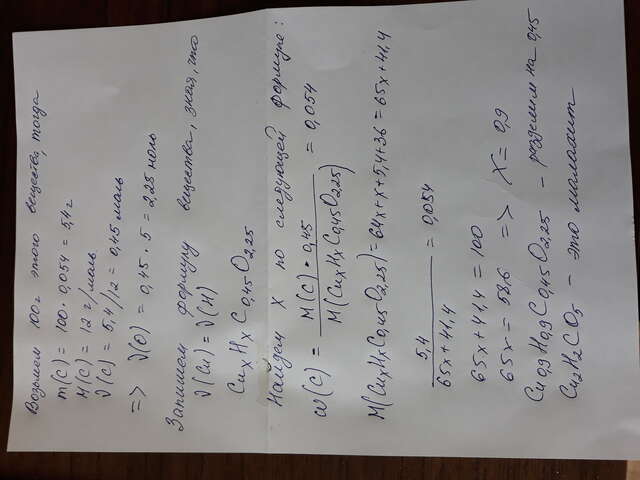 Возьмем 100г этого вещества, тогда
m(C) = 100 · 0,054 = 5,4г
M(C) = 12 г/моль
ν(C) = 5,4/12 = 0,45 моль
=> ν(O) = 0,45 · 5 = 2,25 моль
Запишем формулу вещества, зная, что
ν(Cu) = ν(H)
CuxHxC0,45O2,25
Найдем x по следующей формуле:
ω(C) = M(C) · 0,45 / M(CuxHxC0,45O2,25) = 0,054
M(CuxHxC0,45O2,25) = 64x + x + 5,4 + 36 = 65x + 41,4
5,4 / 65x + 41,4 = 0,054
65x + 41,4 = 100
65x = 58,6 => x = 0,9
Cu0,9H0,9C0,45O2,25 - разделим на 0,45
Cu2H2CO5 - это малахит